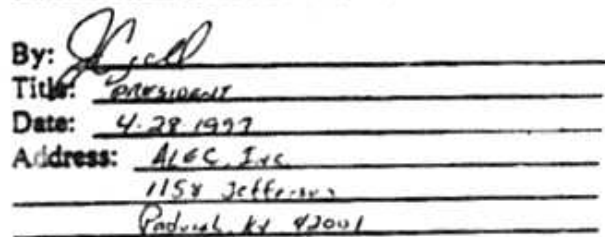 By:
Title: PRESIDENT
Date: 4-28 1997
Address: ALEC, Inc
1158 Jefferson
Paducah, KY 42001